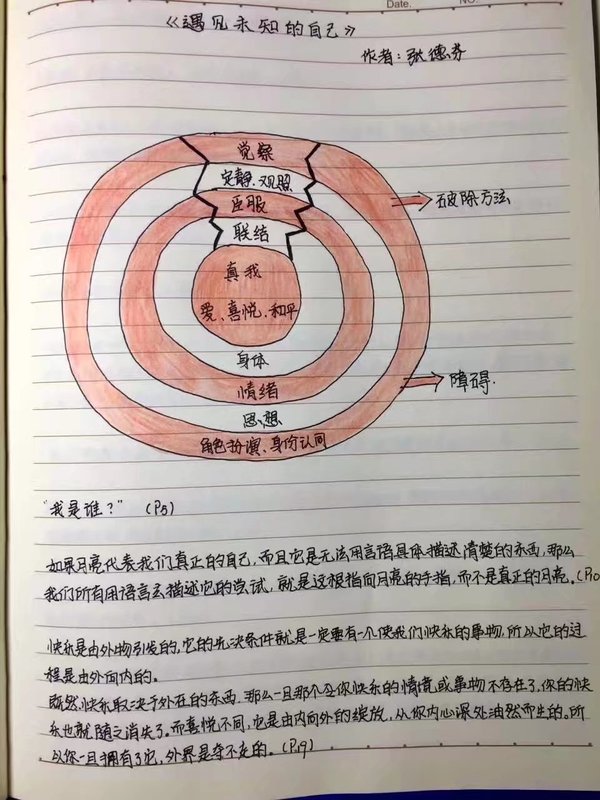 Date.
NO.
《遇见未知的自己》
作者：张德芬
觉察
定静、观照
臣服
联结
真我
爱、喜悦、和平
身体
情绪
思想
角色扮演、身份认同
破除方法
障碍.
"我是谁？" (P5)
如果月亮代表我们真正的自己，而且它是无法用言语具体描述清楚的东西，那么
我们所有用语言去描述它的尝试，就是这根指向月亮的手指，而不是真正的月亮。(P10
快乐是由外物引发的，它的先决条件就是一定要有一个使我们快乐的事物，所以它的过
程是由外向内的。
既然快乐取决于外在的东西，那么一旦那个令你快乐的情境或事物不存在了，你的快
乐也就随之消失了。而喜悦不同，它是由内向外的绽放，从你内心深处油然而生的。所
以你一旦拥有了它，外界是夺不走的。(P19)